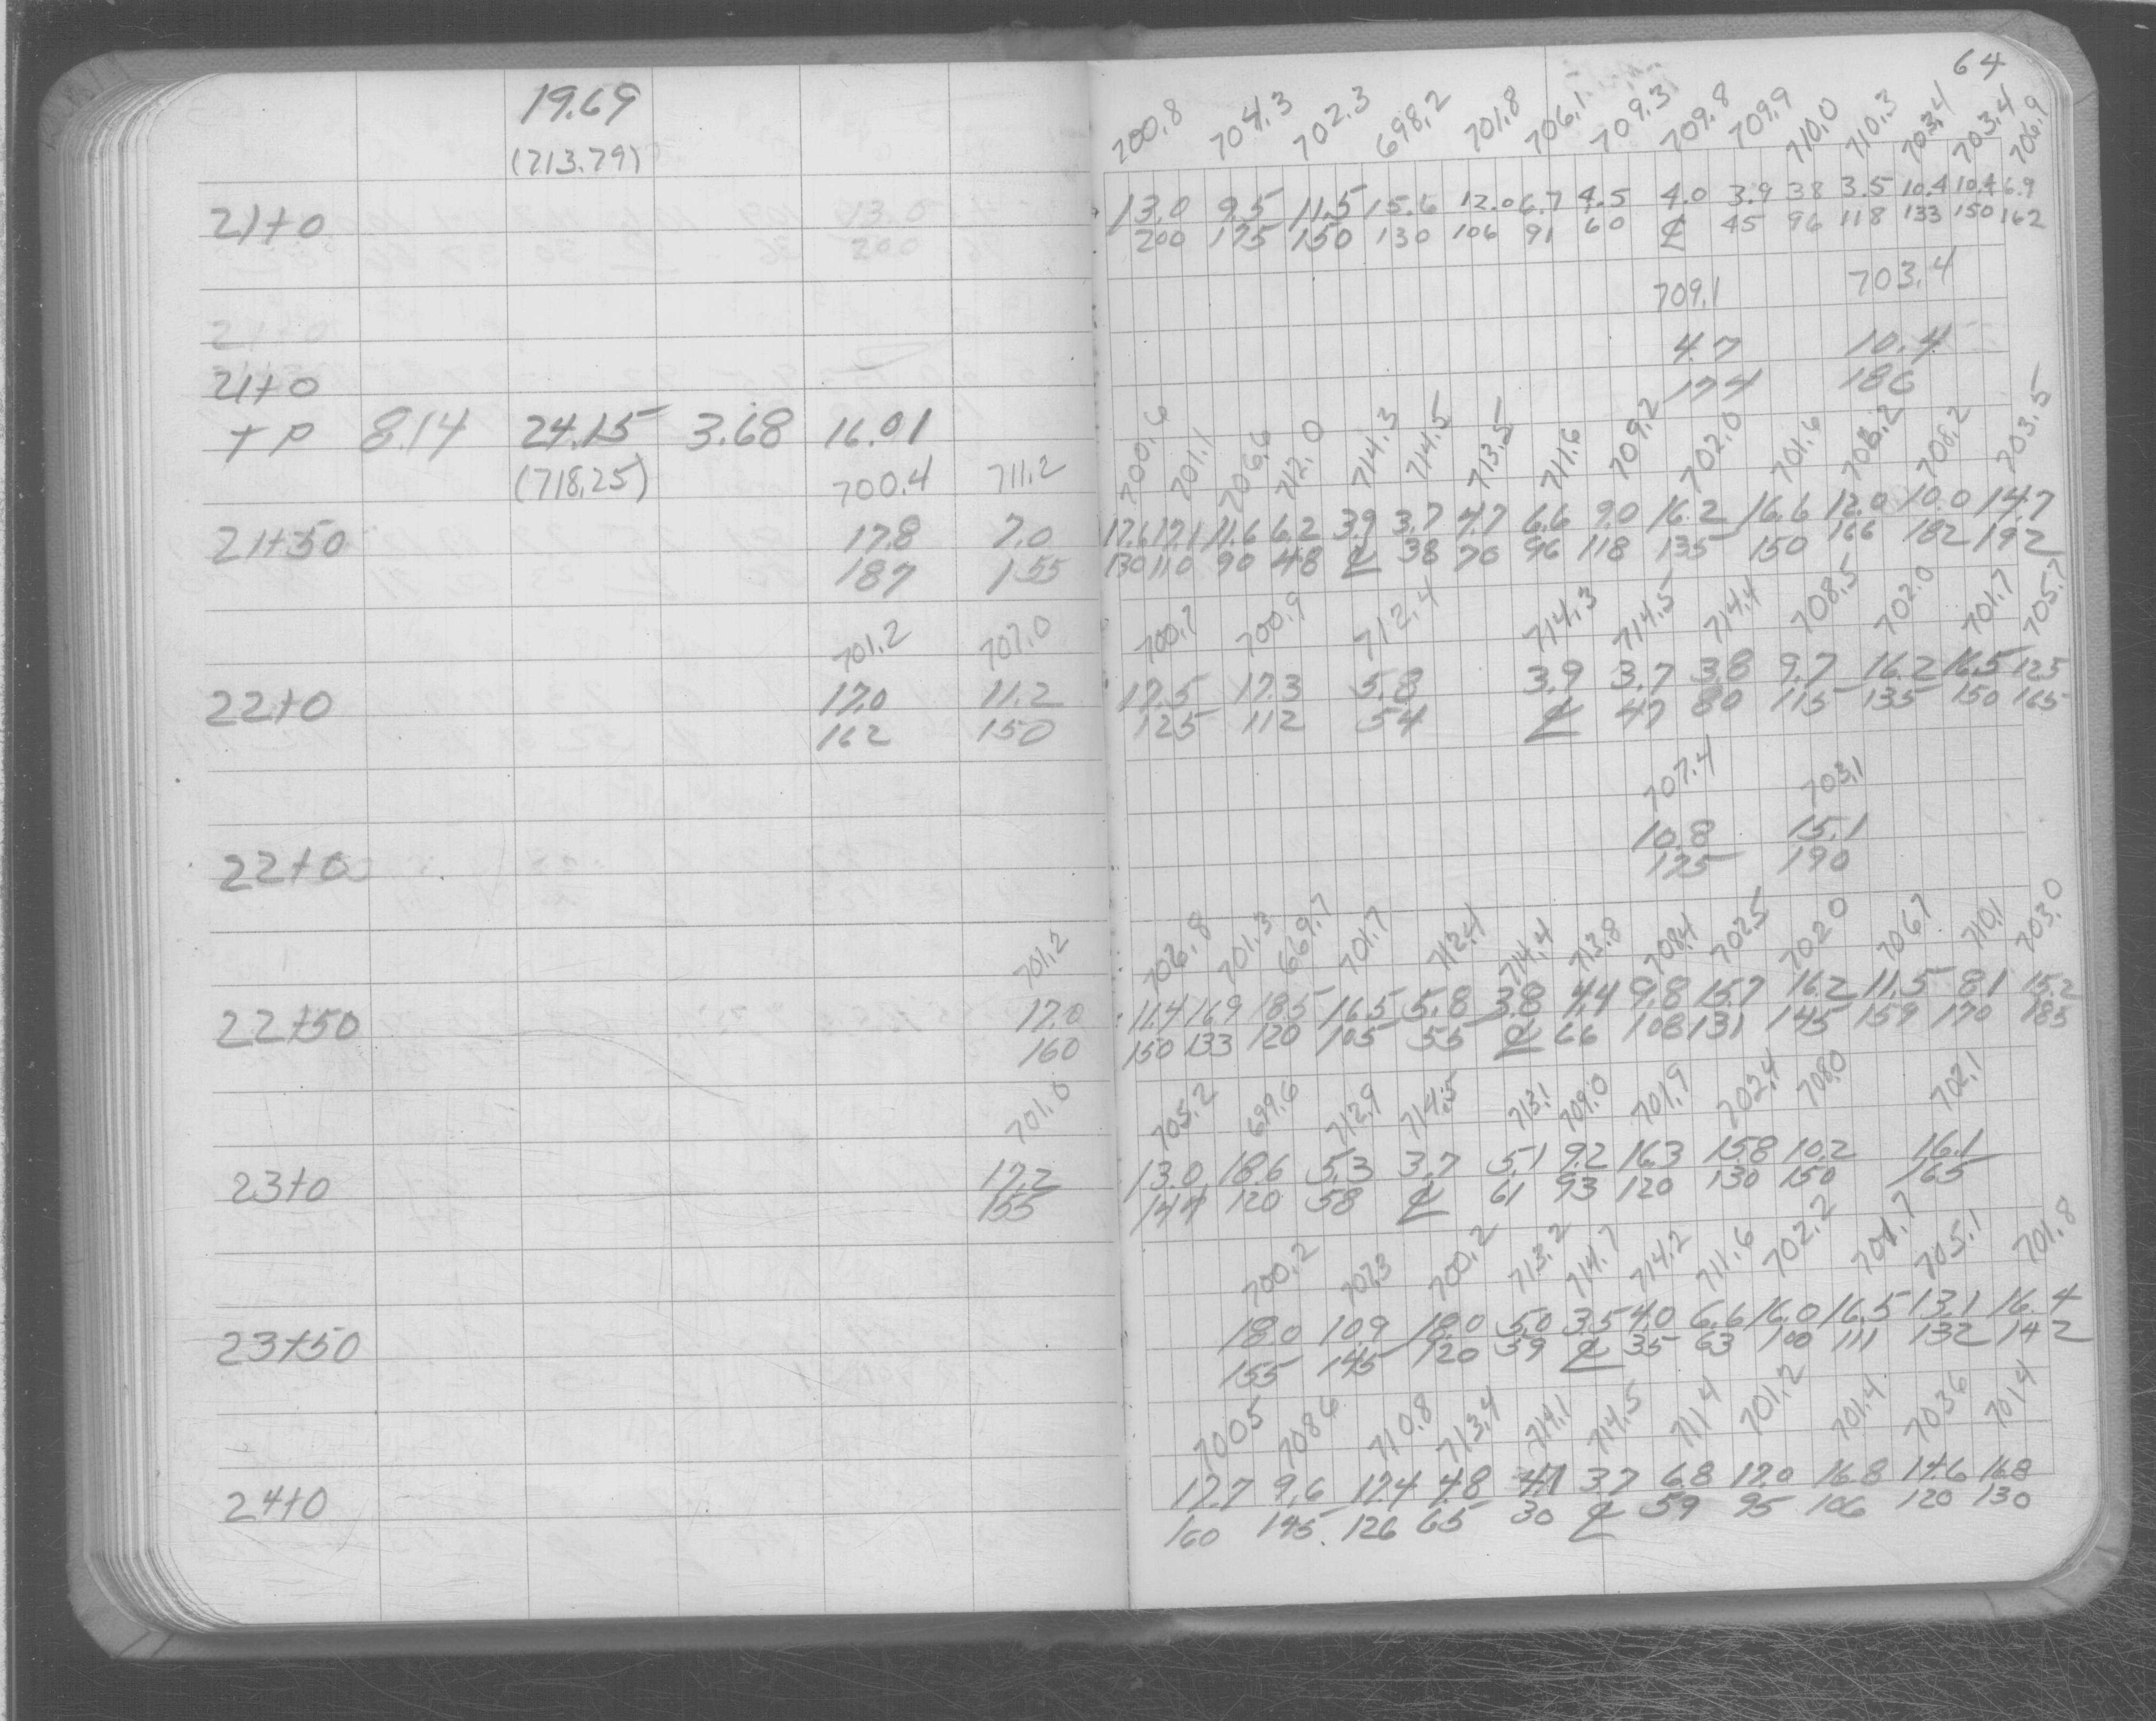 64
19.69
(713.79)
700.8 704.3 702.3 698.2 701.8 706.1 709.3 709.8 709.9 710.0 710.3 703.4 703.4 706.9
21+0 13.0 9.5 11.5 15.6 12.0 6.7 4.5 4.0 3.9 38 3.5 10.4 10.4 6.9
200 175 150 130 106 91 60 ℄ 45 96 118 133 150 162
709.1 703.4
4.7 10.4
21+0 174 186
TP 8.14 24.15 3.68 16.01
(718.25) 700.4 711.2 700.6 701.1 706.6 712.0 714.3 714.5 713.5 711.6 709.2 702.0 701.6 708.2 703.5
21+50 17.8 7.0 17.6 17.1 11.6 6.2 3.9 3.7 4.7 6.6 9.0 16.2 16.6 12.0 10.0 14.7
187 155 130 110 90 48 ℄ 38 70 96 118 135 150 166 182 192
701.2 707.0 700.7 700.9 712.4 714.3 714.5 714.4 708.5 702.0 701.7 705.7
22+0 17.0 11.2 17.5 17.3 5.8 3.9 3.7 3.8 9.7 16.2 16.5 12.5
162 150 125 112 54 ℄ 47 80 115 135 150 165
707.4 703.1
10.8 15.1
22+0 175 190
701.2 706.8 701.3 669.7 701.7 712.4 714.4 713.8 708.4 702.5 702.0 706.7 710.1 703.0
22+50 17.0 11.4 16.9 18.5 16.5 5.8 3.8 4.4 9.8 15.7 16.2 11.5 8.1 15.2
160 150 133 120 105 55 ℄ 66 108 131 145 159 170 185
701.0 705.2 699.6 712.9 714.5 713.1 709.0 701.9 702.4 708.0 702.1
23+0 17.2 13.0 18.6 5.3 3.7 5.1 9.2 16.3 15.8 10.2 16.1
155 147 120 58 ℄ 61 93 120 130 150 165
700.2 707.3 700.2 713.2 714.7 714.2 711.6 702.2 701.7 705.1 701.8
23+50 18.0 10.9 18.0 5.0 3.5 4.0 6.6 16.0 16.5 13.1 16.4
155 145 120 59 ℄ 35 63 100 111 132 142
700.5 708.6 710.8 713.4 714.1 714.5 711.4 701.2 701.4 703.6 701.4
24+0 17.7 9.6 17.4 4.8 4.1 3.7 6.8 17.0 16.8 14.6 16.8
160 145 126 65 30 ℄ 59 95 106 120 130